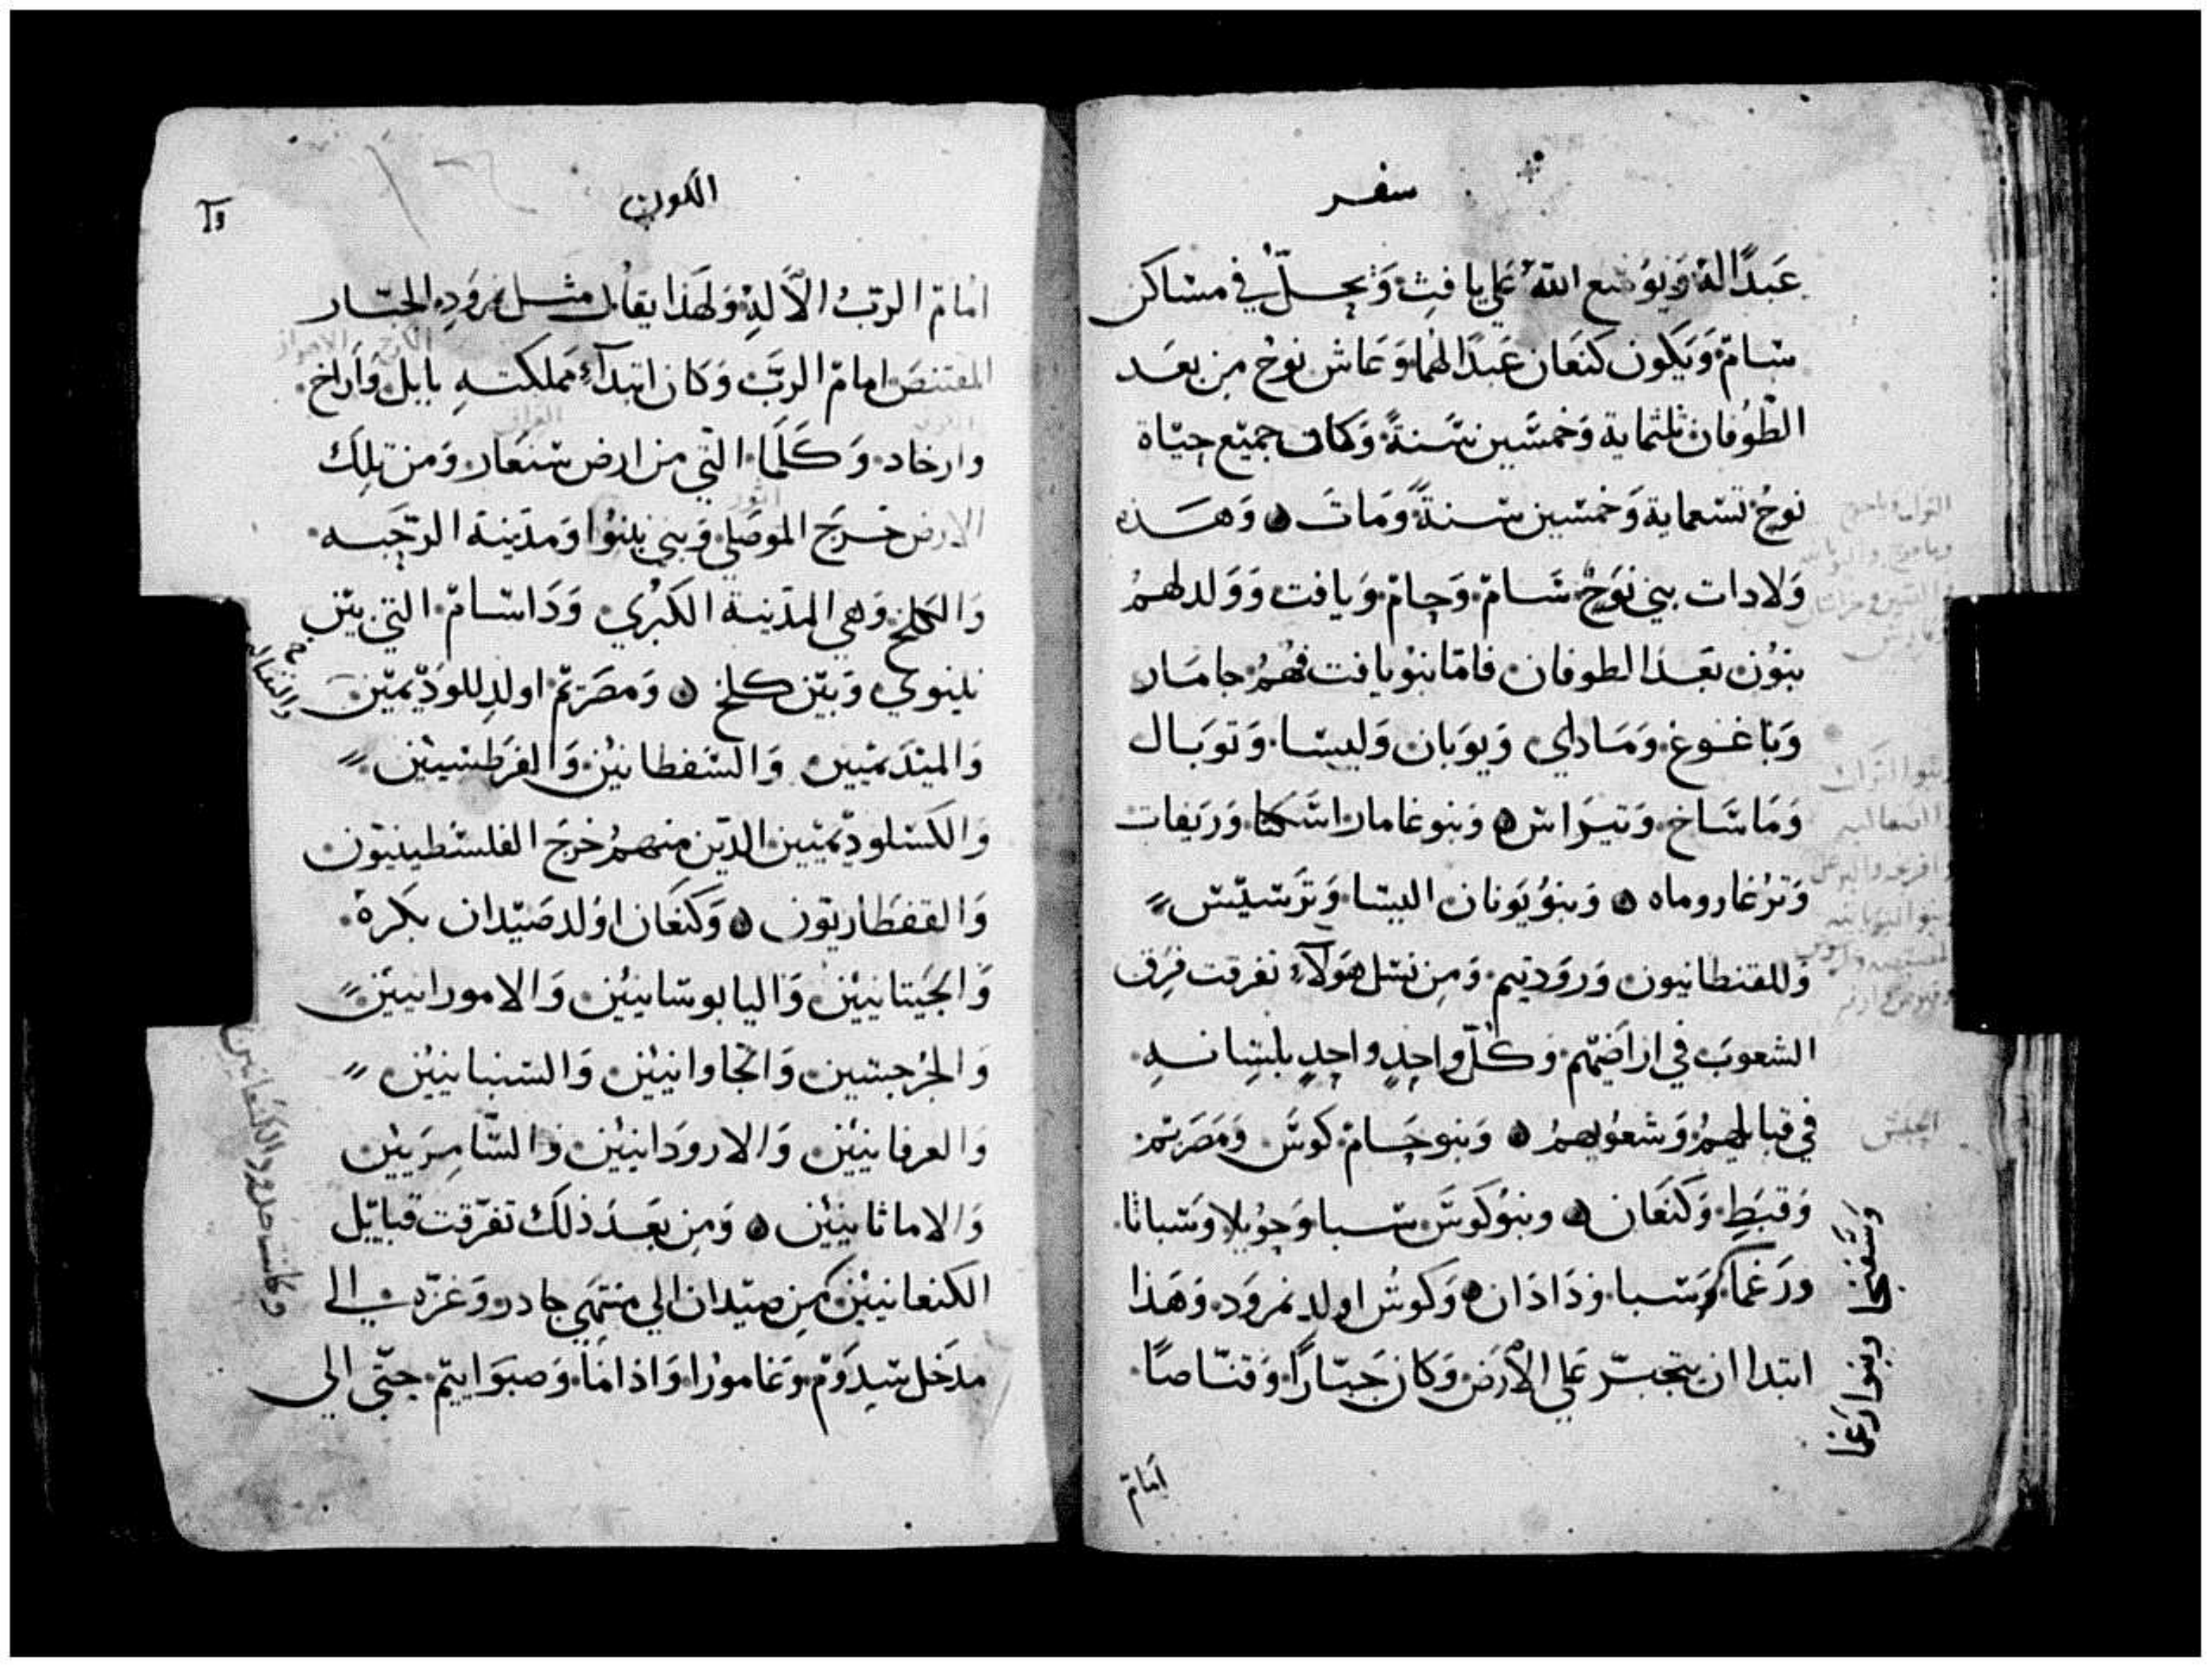 سفر
عَبدًا لهُ وَيوُسّع اللّهُ عَلي يافِث وَيحلّ في مسَاكن
سَام وَيَكون كنعَان عَبدًا لهُما وَعَاش نوحُ من بعَد
الطّوُفان ثلثماية وَخمسّين سَنةً وَكان جميَع حيَاة
نوحُ تسَعماية وَخمسين سنةً وَمَات وَهَذه
وَلادات بني نوَح سَام وَحام وَيافت وَوَلد لهمُ
بنوُن بَعَد الطوفان فامّا بنوُ يافت فهُمُ جامَار
وَبَاغوغ وَمَاداي وَيوَبان وَليسا وَتوبَال
وَمَاشَاخ وَتيَراش وَبنو غامار اشَكنا وَرَيَفات
وَترُغاروماه وَبنوُ يَونان اليسَا وَترَسيَس
وَللقنطانيون وَروَديم وَمِن نسَل هوَلآءِ تفرقت فِرَق
الشعوبَ في اراضَيهم وَكُلّ واحِدٍ واحِدٍ بلسَانه
في قبايلهمُ وَشعوُبهمُ وَبنو حَام كوشَ وَمَصَريم
وَقبَط وَكنَعَان وبنوُ كوشَ سَبا وَحوُيلا وَسَباتا
ورَغما وَسَبا وَدَادَان وَكوشُ اولد نمرَود وَهَذا
ابتدا ان يتجبّر عَلي الأرَض وَكان جَبّارًا وَقنّاصًا
وَسَفَتجا وبنوا رَغما
الحبش
امَام
الكون
امَام الربّ الآلهِ وَلهَذا يقاُل مثل نمروَدِ الجبّار
المقتنصَ امام الربَّ وَكان ابتدآءِ مَملكتهِ بابل وَاَراخ
وارخاد وَكَلَمَا التي من ارض سَنعَار وَمن تلِك
الارض خَرَج الموصَلي وَبني نينوُا وَمدَينة الرّحَبه
وَالكلخ وَهي المدَينة الكبُري وَدَاسَام التي بيَن
نينوي وَبيَن كلخ وَمصَريمّ اولدِ للوُدّيميّن
وَالميَدَميّين وَالسَفطانيّن وَالفرَطسيّين
وَالكسَلودّيميّين الذّين منهمُ خرَجَ الفلسَطينيّون
وَالقفطَاريّون وَكنَعَان اوَلد صَيّدان بكرهُ
وَالحَيتانييّن وَاليابوسَانييّن وَالامورانييّن
وَالجرُجسَين وَالحَاوانييّن وَالسَنبانييّن
وَالعرفانييّن وَالاروَدَانييّن وَالسّامِرَييّن
وَالاماثانييّن وَمِن بعَد ذلكَ تفرّقت قبايّل
الكنعانييّن مِن صيَدان الي منتهَي جادر وَغزّه الي
مدَخل سَدوَم وَغامورُا وَاذامَا وَصبوَاييم حتّي الي
وكانت حدود الكنعانيين